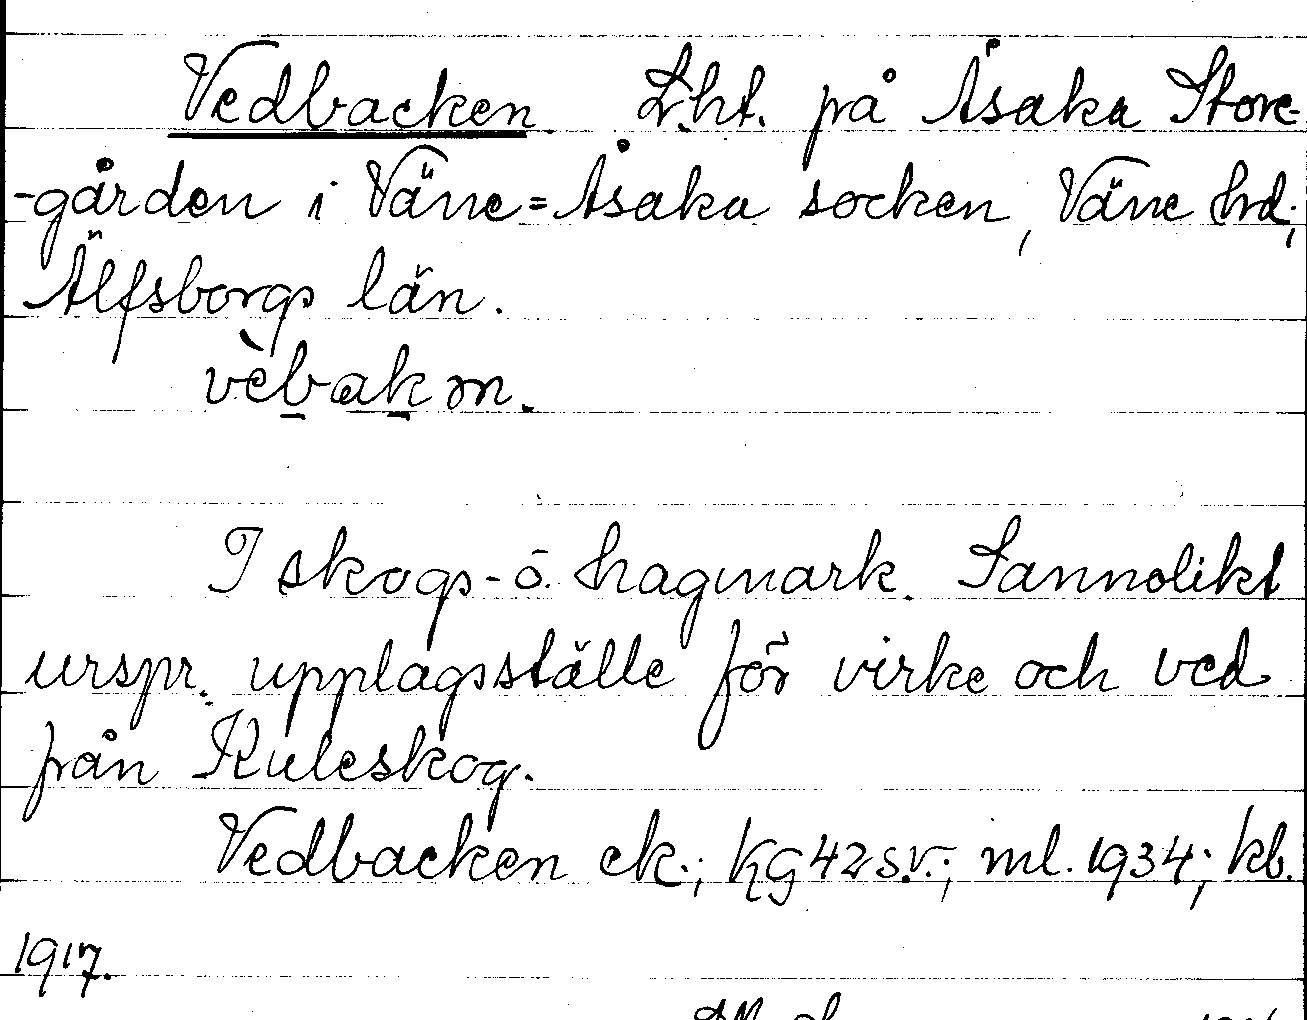 Vedbacken. Lht. på Åsaka Store-
-gården i Väne=Åsaka socken, Väne hrd;
Älfsborgs län.
vèbakən.
I skogs- o. hagmark. Sannolikt
urspr. upplagsställe för virke och ved
från Kuleskog.
Vedbacken ek.; KG42sv.; ml. 1934; kb.
1917.